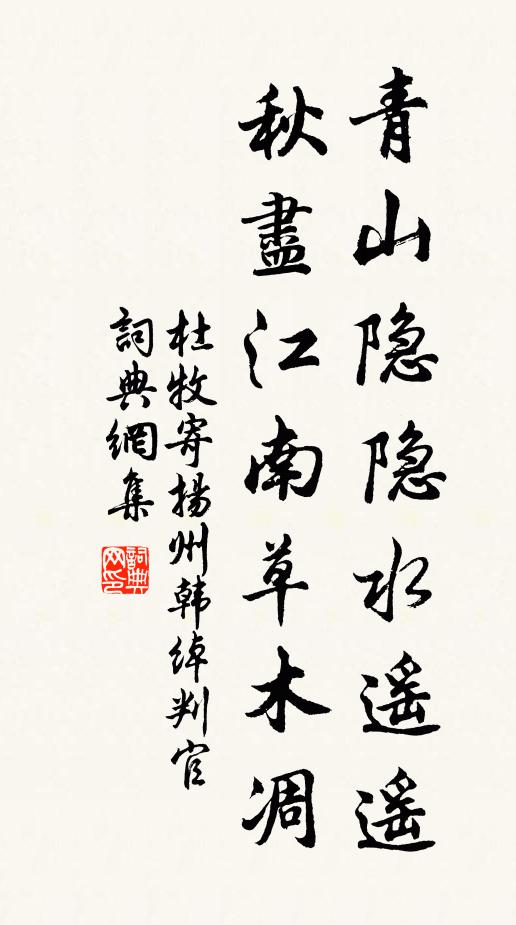 青山隐隐水遥遥
秋盡江南草木凋
杜牧寄揚州韩绰判官
詞典網集
詞典网印